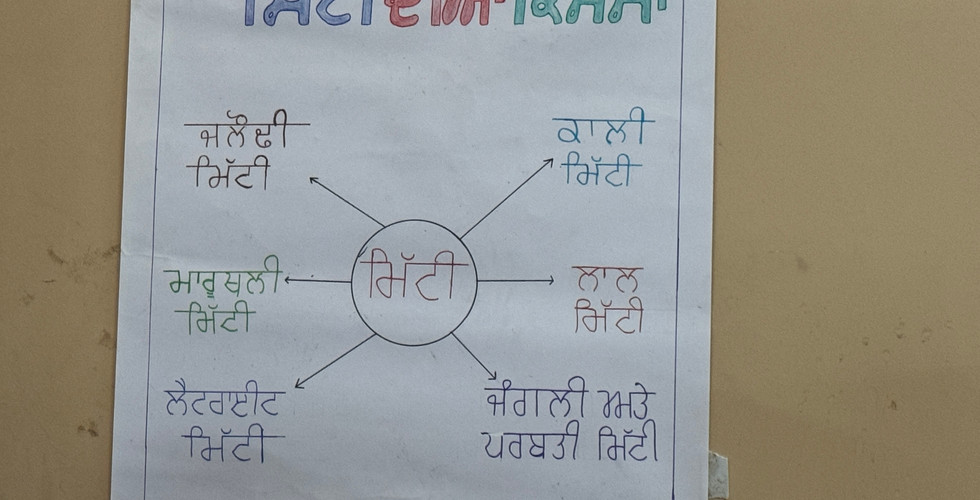 ਮਿੱਟੀ ਦੀਆਂ ਕਿਸਮਾਂ
ਜਲੌਢੀ
ਮਿੱਟੀ
ਕਾਲੀ
ਮਿੱਟੀ
ਮਿੱਟੀ
ਮਾਰੂਥਲੀ
ਮਿੱਟੀ
ਲਾਲ
ਮਿੱਟੀ
ਲੈਟਰਾਈਟ
ਮਿੱਟੀ
ਜੰਗਲੀ ਅਤੇ
ਪਰਬਤੀ ਮਿੱਟੀ